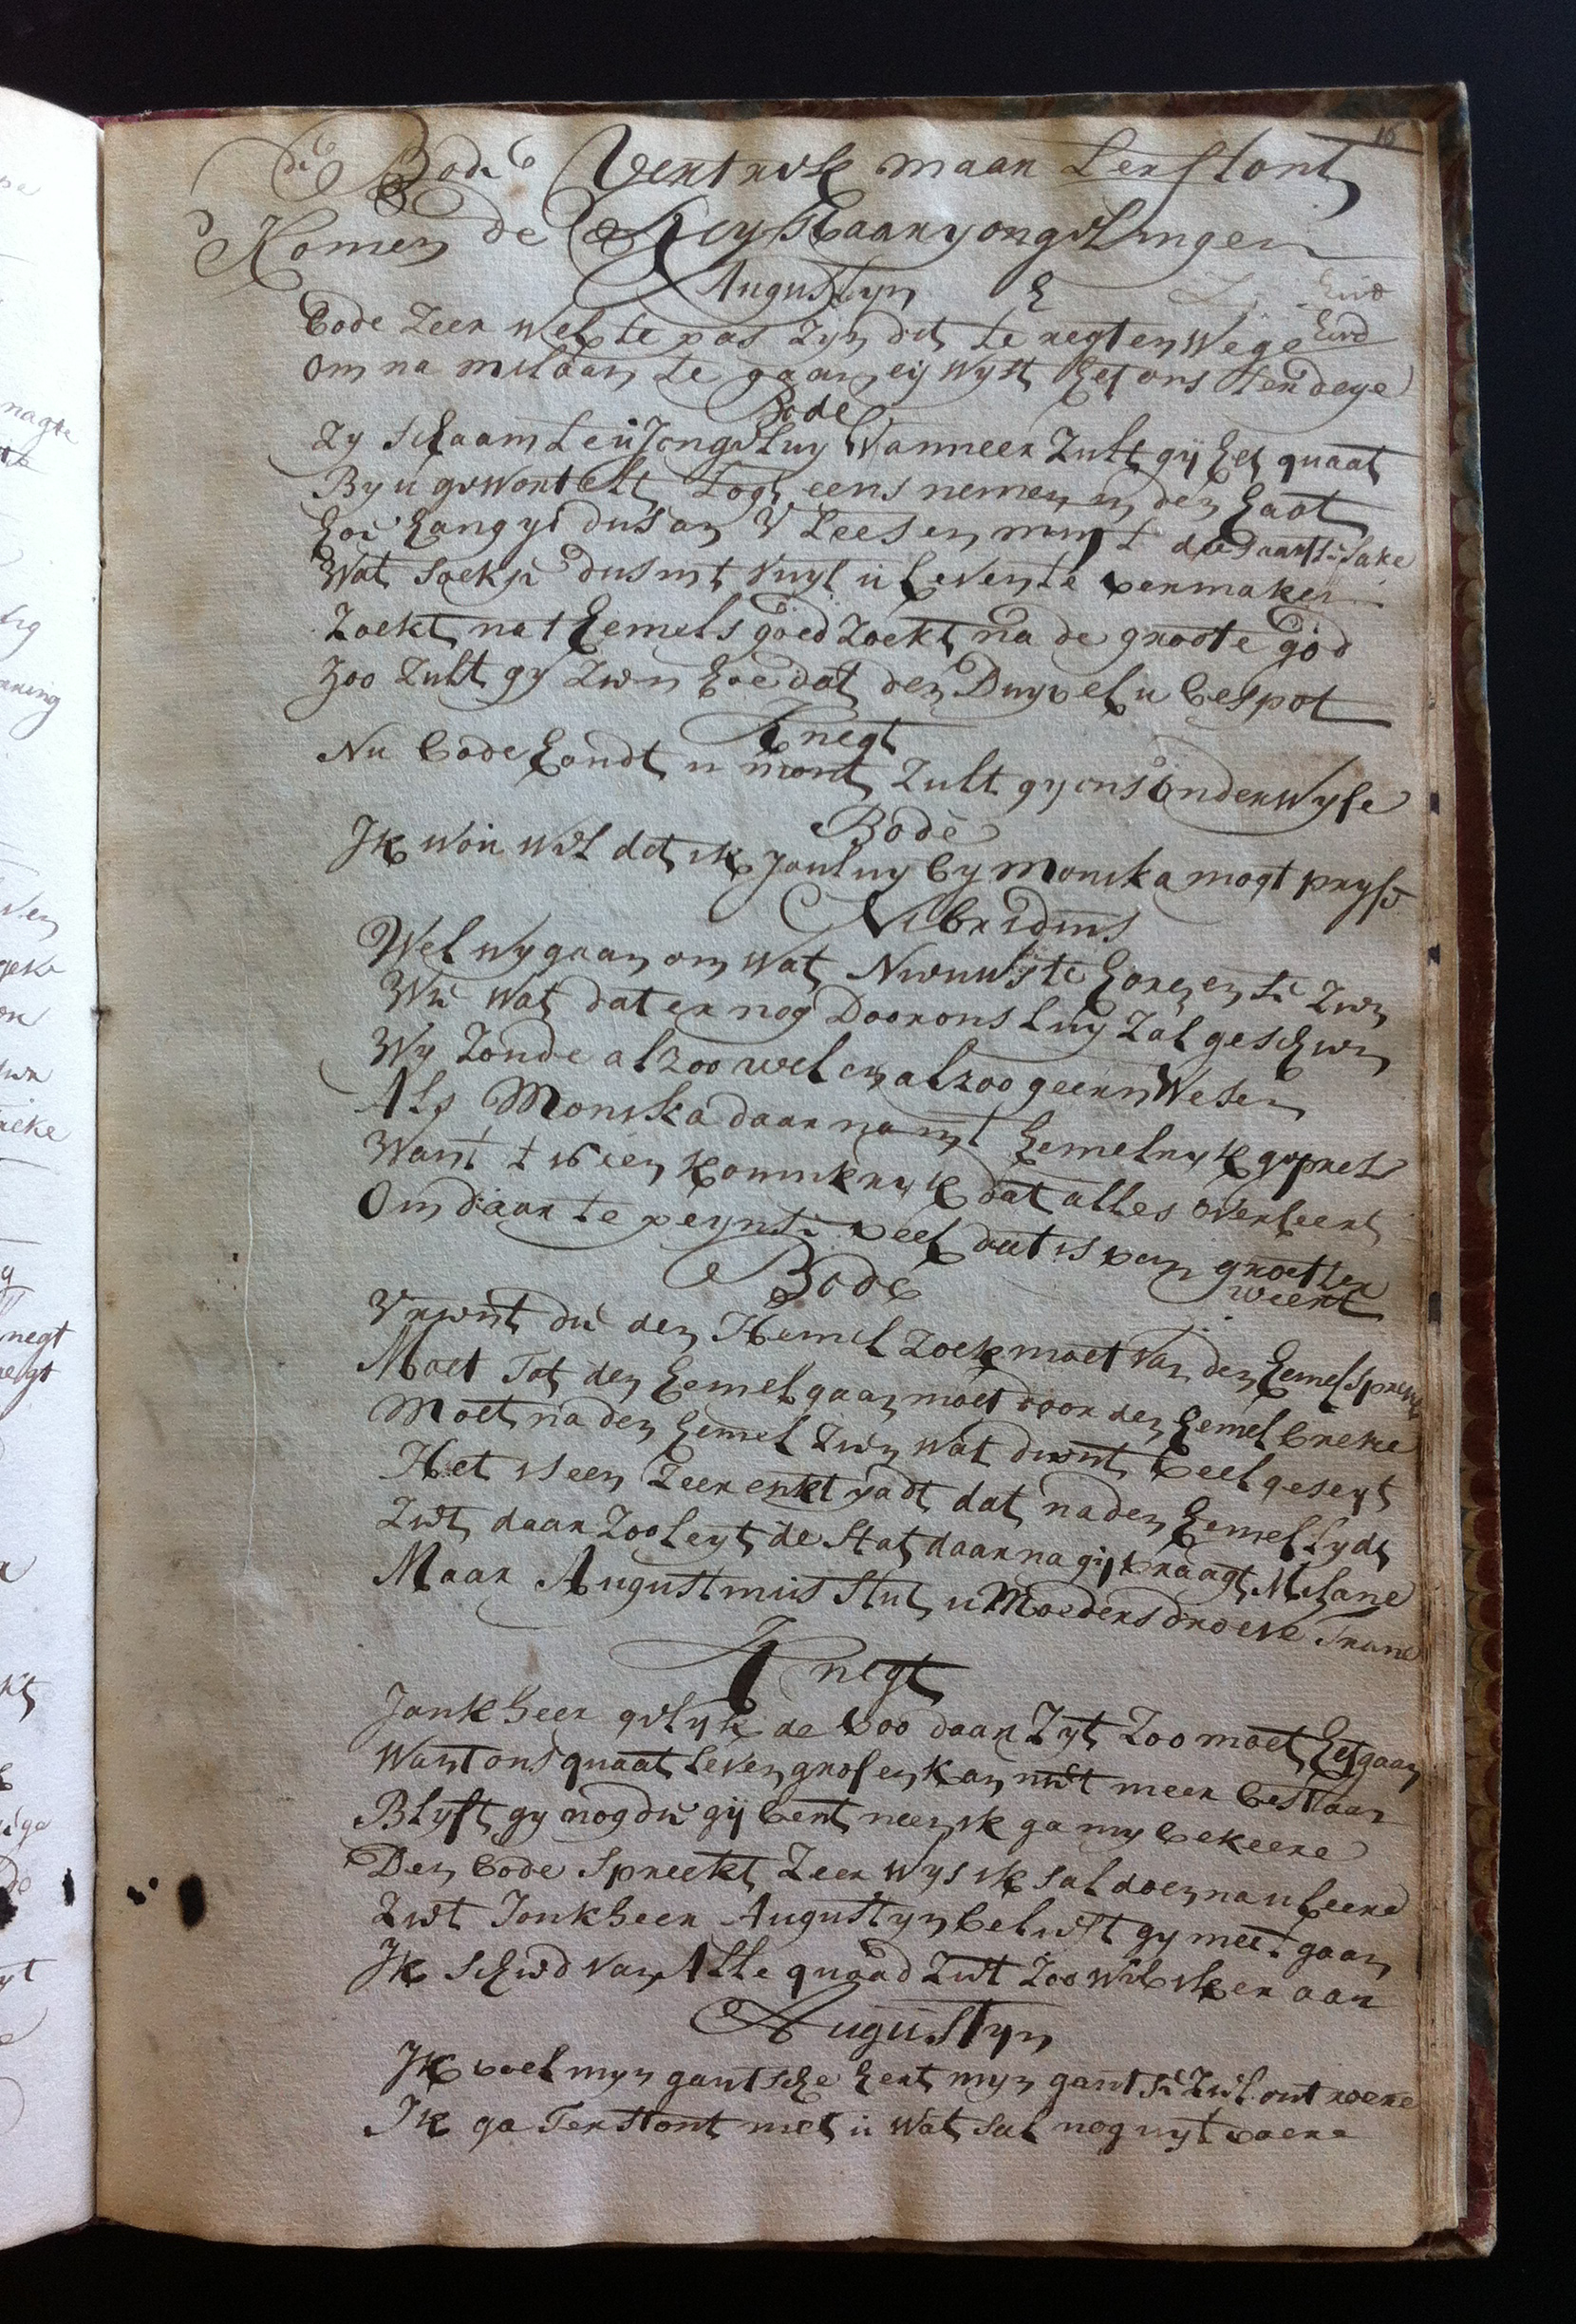 16
de Bode Vertrekt maar terstont
Komen de
Augustyn
Bode zeer wel te pas zyn dit te regten wege
om na milaan te gaan eij wyst het ons ter dege
Bode
zy schaamte u Jongeluy Wanneer zult gij het quaat
By u gewortelt togt eens nemen in den haat
hoe hangyt dus an
Wat soekje dus int vuyl u leven te vermaken
Zoekt nat hemels goed zoekt na de groote god
zoo zult gy zien hoe dat den Duyvel u bespot
Knegt
Nu bode houdt u mont zult gy ons onderwyse
Bode
Ik wou wel dat ik Jouluy by Monika mogt pryse
Nebridius
Wel wy gaan om wat Nieuws te horen en te zien
Wie wat dat er nog Door ons luy zal geschien
Wy zoude alzoo wel en alzoo geern Wesen
Als Monika daar na int hemelryk gepresen
Want t is een koninkryk dat alles overheert
Om daar te peynse veel dat is van grootter
weert
Bode
Vrient die den Hemel zoek moet van den hemel spreken
Moet Tot den hemel gaan moet door den hemel breke
Moet na den hemel zien wat dient veel geseyt
Het is een zeer enkt padt dat na den hemel lydt
Ziet daar zoo leyt de stat daar na gij vraagt Milane
Maar Augustinus stut u Moeders droeve Trane
Knegt
Jonkheer gelyk de boo daar zyt zoo moet het gaan
Want ons quaat leven grof en kan niet meer bestaan
Blyft gy nog die gij bent neen ik ga my bekeere
Den bode spreekt zeer wys ik sal doen na u leere
Ziet Jonkheer Augustyn belieft gy meet gaan
Ik schied van Alle quaad ziet zoo wel ik er aan
Augustyn
Ik voel myn gantsche hert myn gantse ziel ontroere
Ik ga Terstont met u wat sal nog uyt voere